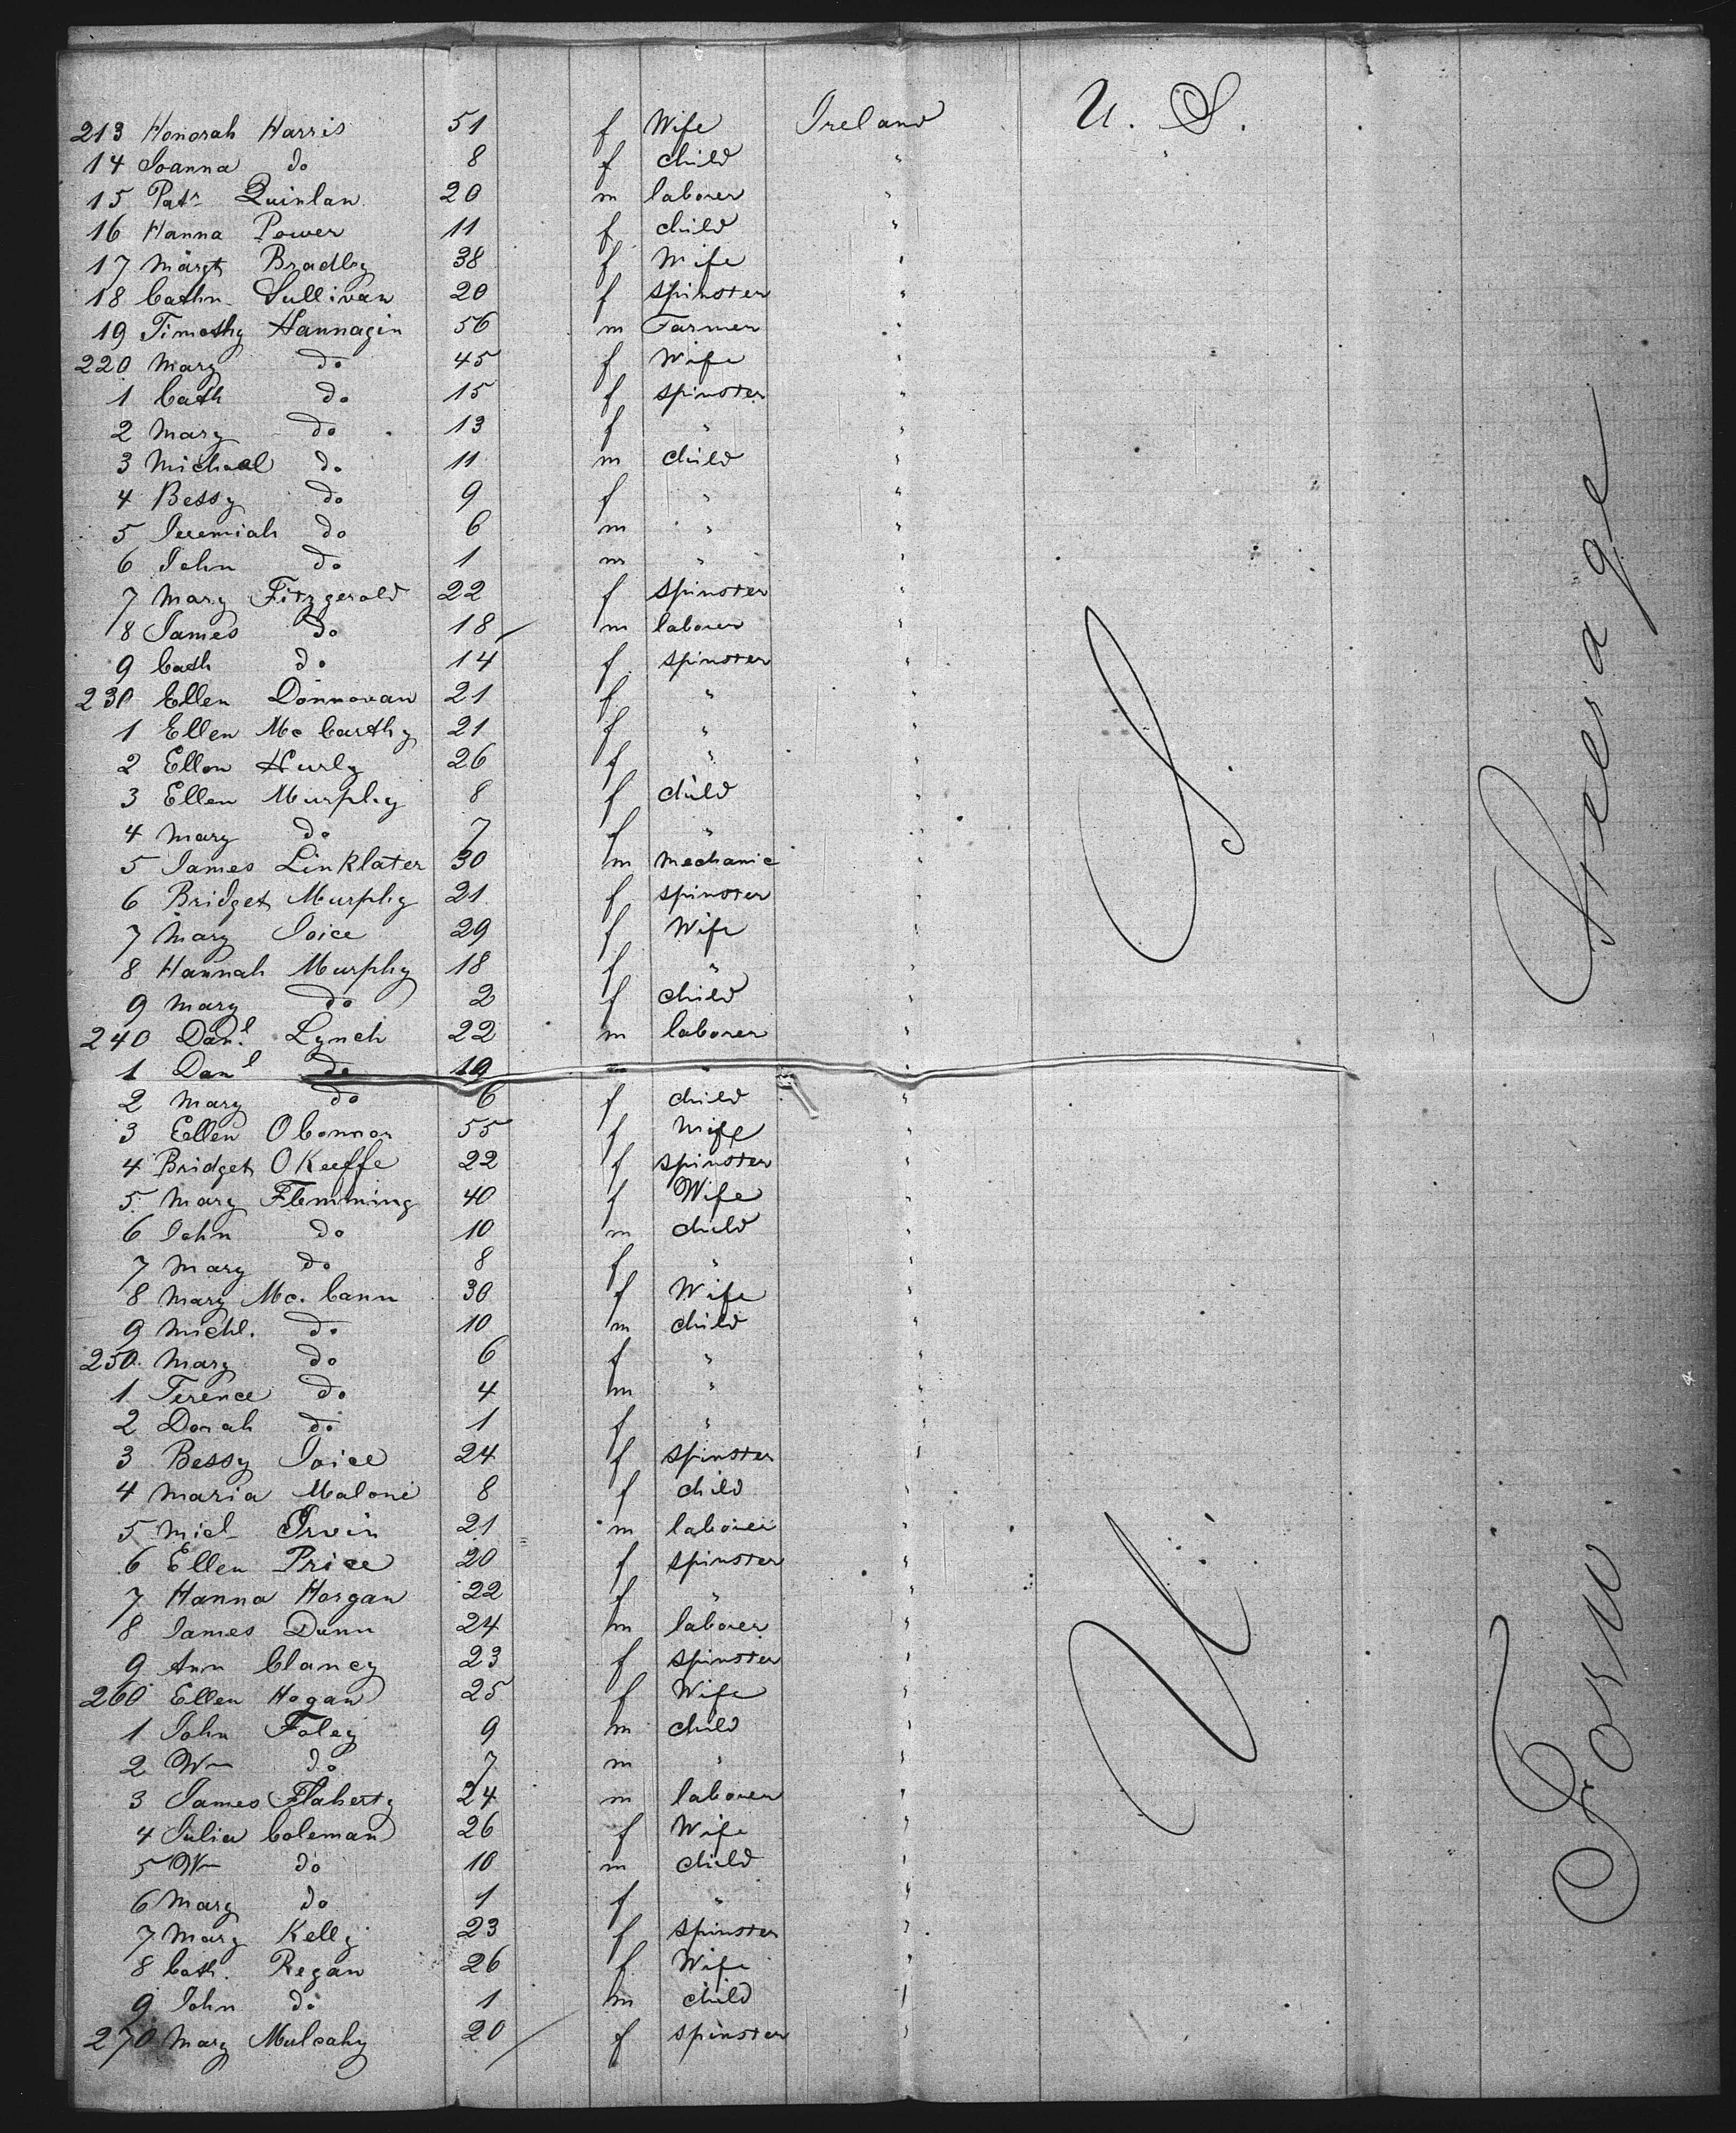 213 Honorah Harris 51 f Wife Ireland U. S.
14 Joanna do 8 f child "
15 Patk Quinlan 20 m laborer "
16 Hanna Power 11 f child "
17 Margt Bradley 38 f Wife "
18 Cathn Sullivan 20 f spinster "
19 Timothy Hannagin 56 m Farmer "
220 Mary do 45 f Wife "
1 Cath do 15 f spinster "
2 Mary do 13 f " "
3 Michael do 11 m child "
4 Bessy do 9 f " "
5 Jeremiah do 6 m " "
6 John do 1 m " "
7 Mary Fitzgerald 22 f spinster "
8 James do 18 m laborer "
9 Cath do 14 f spinster "
230 Ellen Donnovan 21 f " "
1 Ellen Mc Carthy 21 f " "
2 Ellen Hurly 26 f " "
3 Ellen Murphy 8 f child "
4 Mary do 7 f " "
5 James Linklater 30 m mechanic "
6 Bridget Murphy 21 f spinster "
7 Mary Joice 29 f Wife "
8 Hannah Murphy 18 f " "
9 Mary do 2 f child "
240 Danl Lynch 22 m laborer "
1 Danl do 19 m " "
2 Mary do 6 f child "
3 Ellen OConnor 55 f Wife "
4 Bridget OKeeffe 22 f spinster "
5 Mary Flemming 40 f Wife "
6 John do 10 m child "
7 Mary do 8 f " "
8 Mary Mc. Cann 30 f Wife "
9 Michl. do 10 m child "
250 Mary do 6 f " "
1 Terence do 4 m " "
2 Dorah do 1 f " "
3 Bessy Joice 24 f spinster "
4 Maria Malone 8 f child "
5 Micl Irvin 21 m laborer "
6 Ellen Price 20 f spinster "
7 Hanna Horgan 22 f " "
8 James Dunn 24 m laborer "
9 Ann Clancy 23 f spinster "
260 Ellen Hogan 25 f Wife "
1 John Foley 9 m child "
2 Wm do 7 m " "
3 James Flaherty 24 m laborer "
4 Julia Coleman 26 f Wife "
5 Wm do 10 m child "
6 Mary do 1 f " "
7 Mary Kelly 23 f spinster "
8 Cath. Regan 26 f Wife "
9 John do 1 m child "
270 Mary Mulcahy 20 f spinster "
U S
Steerage